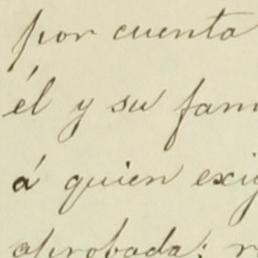 por cuenta
él y su fam
á quien exig
aprobada; r